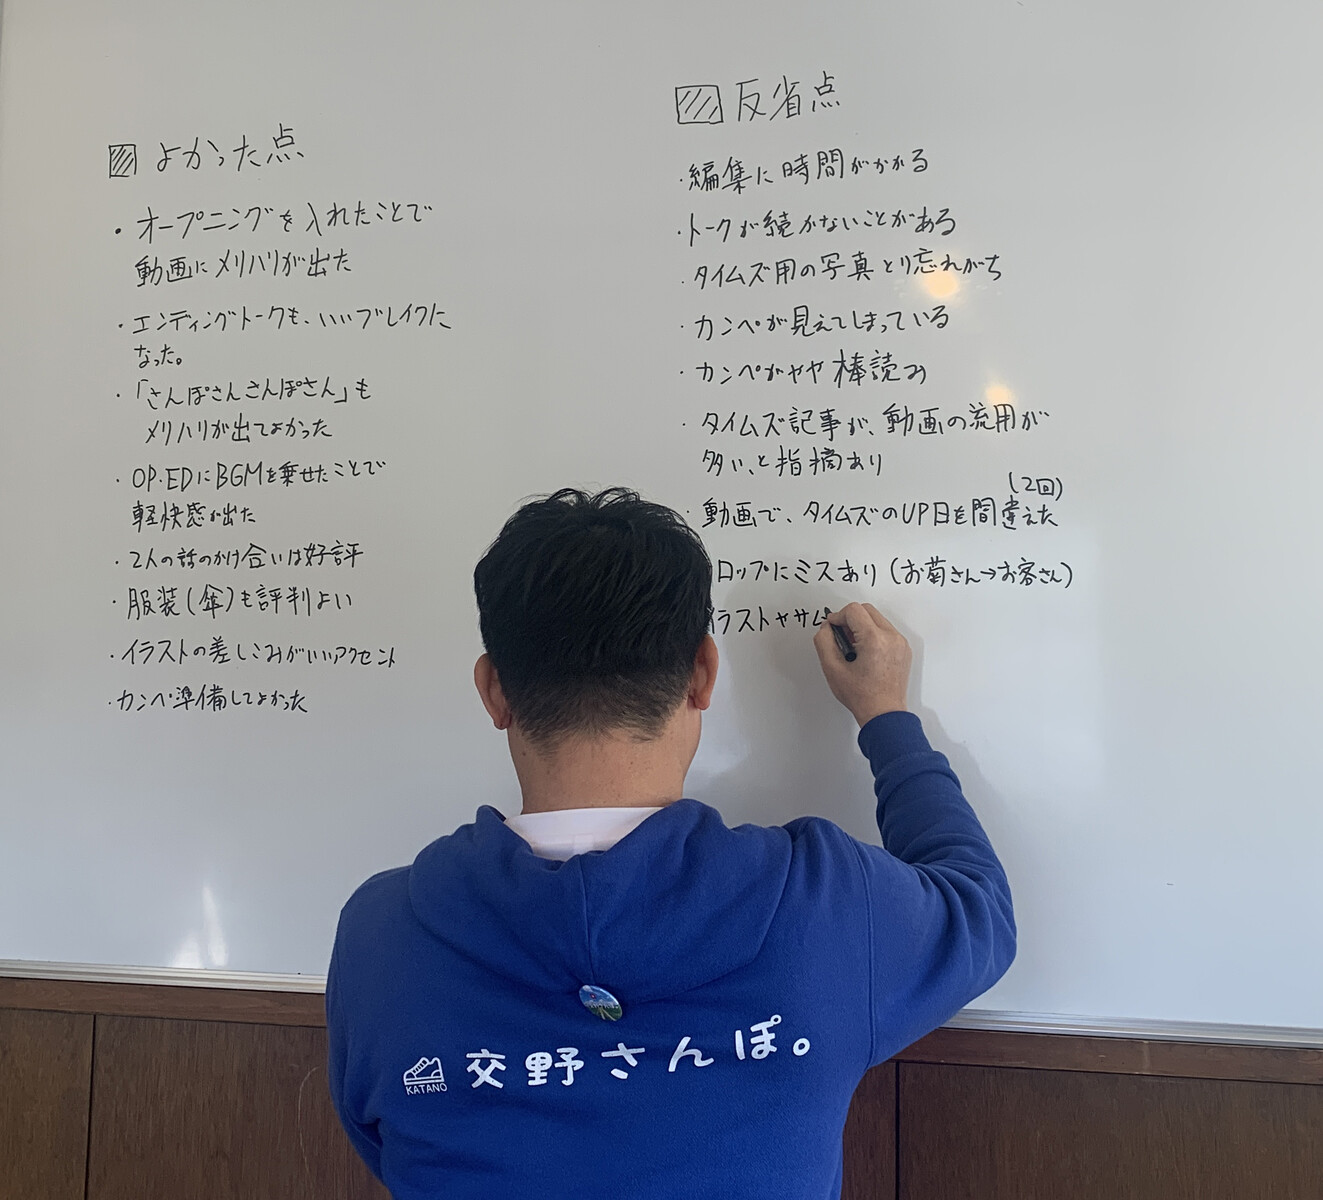 よかった点
・オープニングを入れたことで
動画にメリハリが出た
・エンディングトークも、いいブレイクに
なった。
・「さんぽさんさんぽさん」も
メリハリが出てよかった
・OP・EDにBGMを乗せたことで
軽快感が出た
・2人の話のかけ合いは好評
・服装(傘)も評判よい
・イラストの差しこみがいいアクセント
・カンペ準備してよかった
反省点
・編集に時間がかかる
・トークが続かないことがある
・タイムズ用の写真とり忘れがち
・カンペが見えてしまっている
・カンペがやや棒読み
・タイムズ記事が、動画の流用が
多い、と指摘あり
(2回)
・動画で、タイムズのUP日を間違えた
ロップにミスあり(お菊さん→お客さん)
イラストやサム
KATANO
交野さんぽ。